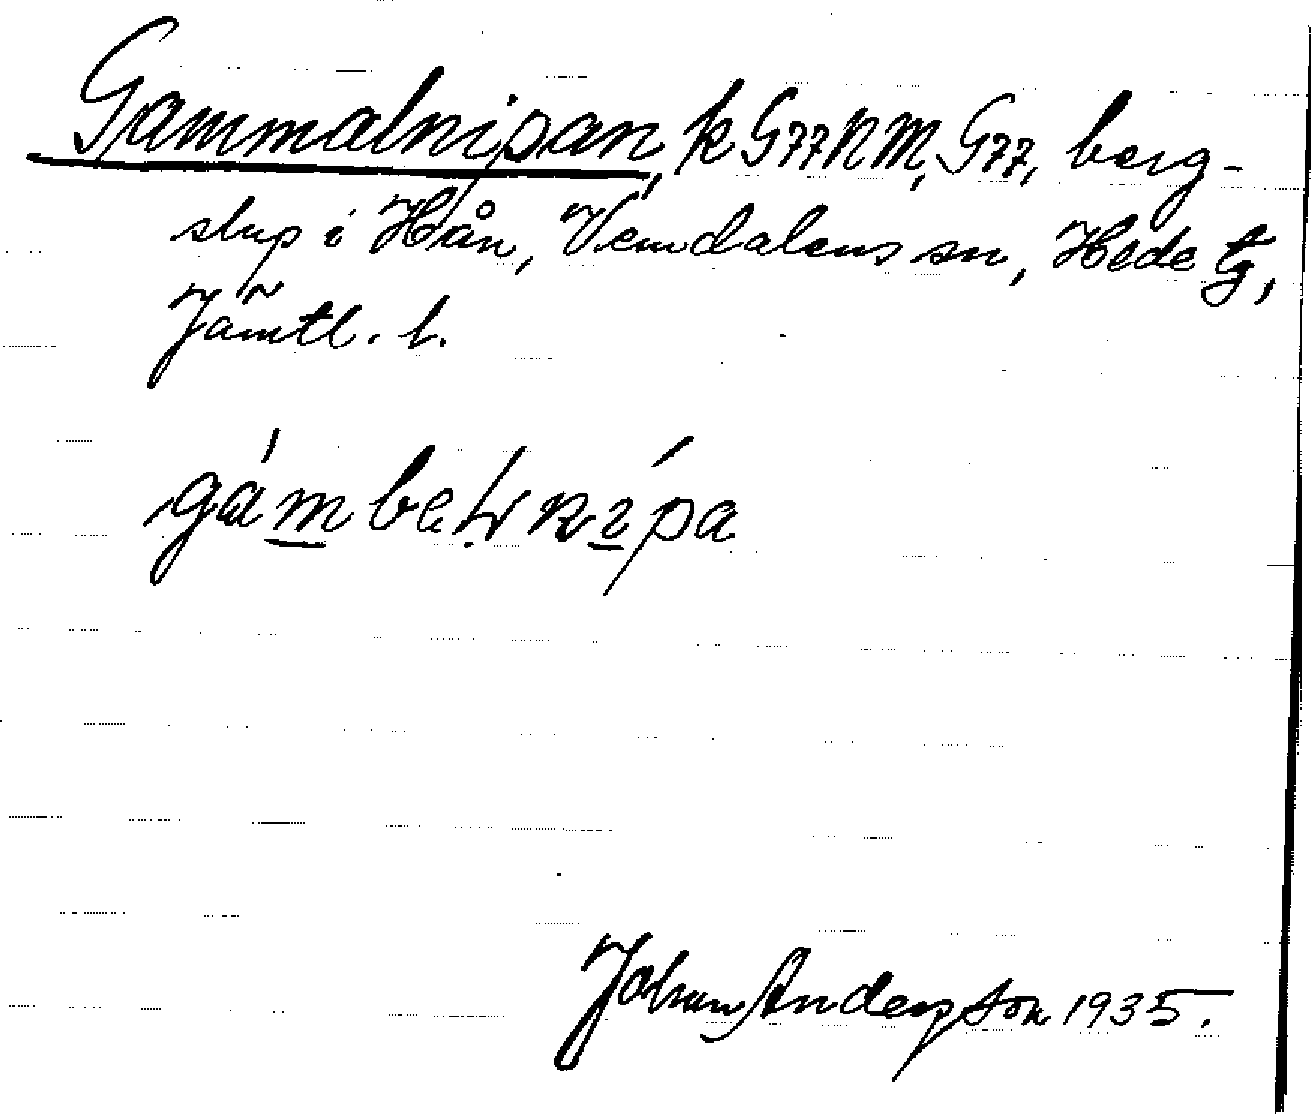 Gammalnipan, k G77NM, G77, berg-
stup i Hån, Vemdalens sn, Hede tg,
Jämtl. l.
Johan Anderson 1935.